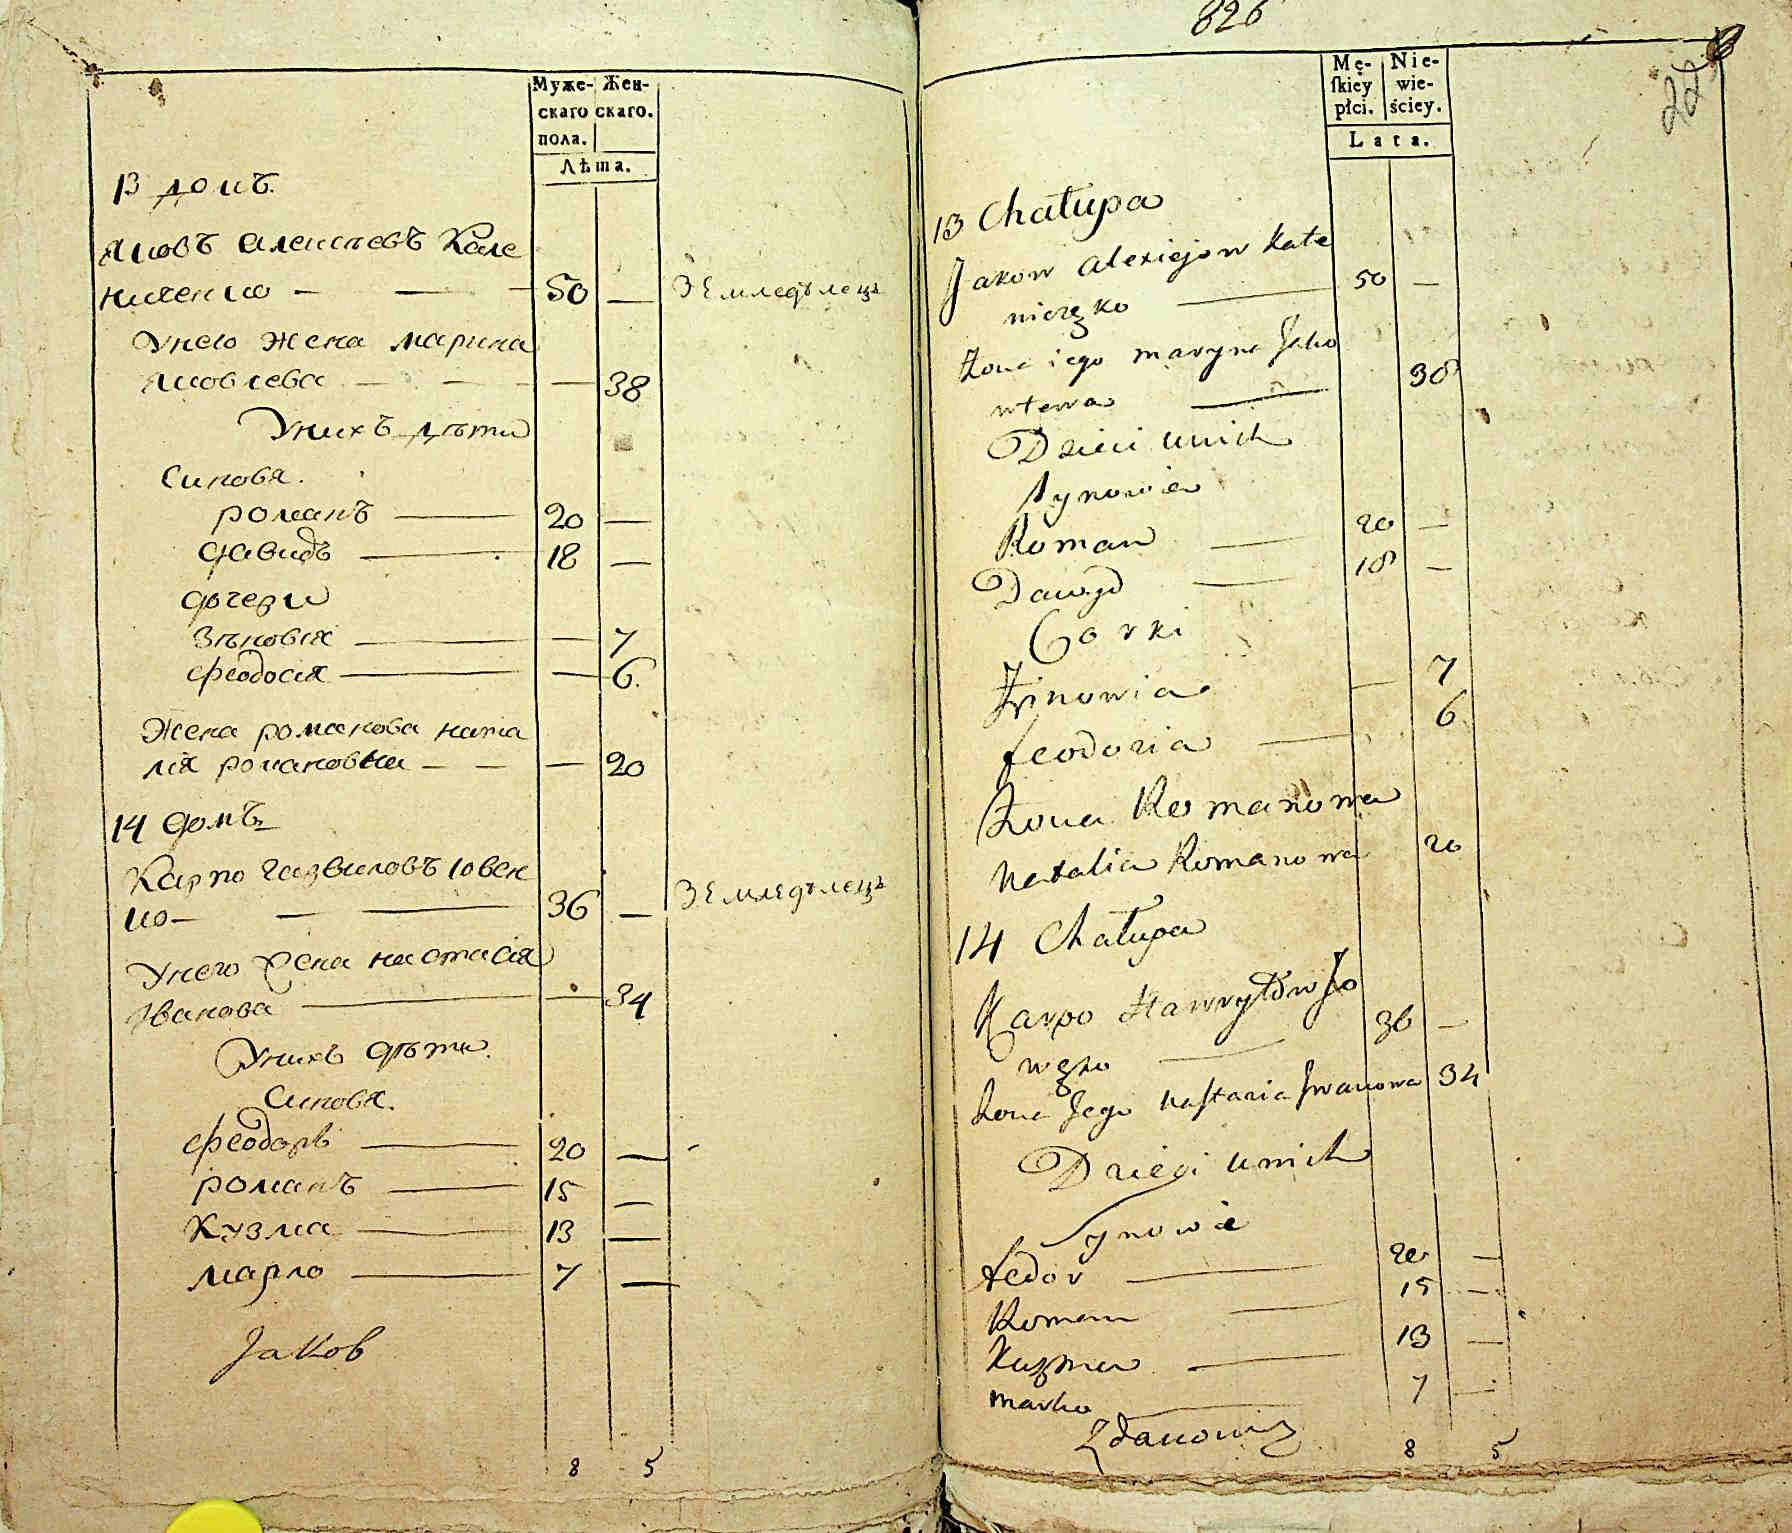 Муже- Жен-
скаго скаго.
пола.
Лѣта.
13 домъ.
Яковъ Алексѣевъ Кале
ниченко — — — 50 —
Земледѣлецъ
Унего жена марина
яковлева — — — 38
Унихъ дѣти
Синовя.
романъ — 20 —
давидъ — 18 —
дочери
Зѣновія — — 7
феодосія — — 6.
Жена романова ната
лія романовна — — — 20
14 домъ
Карпо гавриловъ Ювен
ко — — — 36 —
Земледѣлецъ
Унего жена настасія
Іванова — — 34
Унихъ дѣти.
Синовя.
феодоръ — 20 —
романъ — 15 —
Кузма — 13 —
марко — 7 —
Jakob
8 5
826
Mę- Nie-
ſkiey wie-
płci. ściey.
Lata.
13 Chałupa
Jakow Alexiejow Kale
niczęko — 50 —
Żona iego maryna Jako
wlewa — 38
Dzieci unich
Synowie
Roman — 20 —
Dawyd — 18 —
Corki
Zynowia — 7
feodozia — 6
Żona Romanowa
Natalia Romanowa 20
14 Chałupa
Karpo Hawryłów Jo
węko — 36 —
Żona Jego Naſtazia Jwanowa 34
Dzieci unich
Synowie
fedor — 20 —
Roman — 15 —
Kuzma — 13 —
marko — 7 —
Zdanowicz
8 5